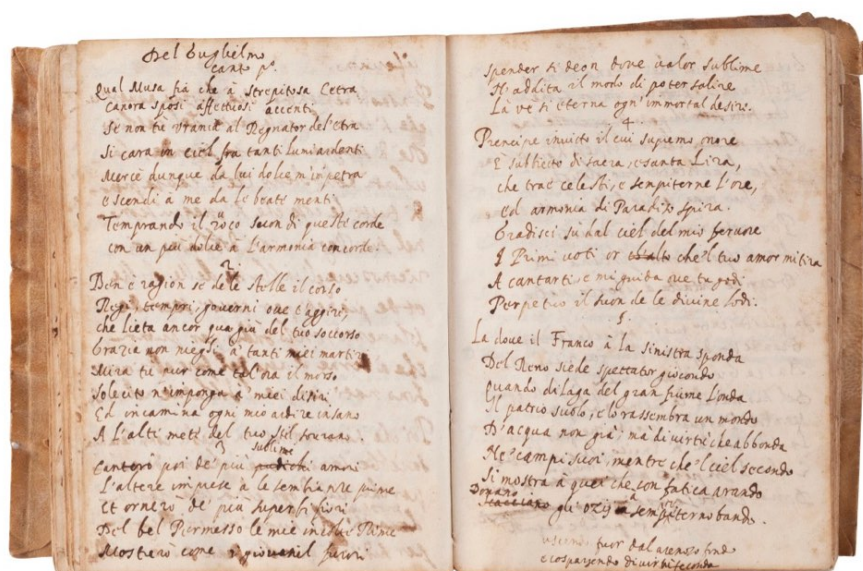 Del Guglielmo
canto p.º
Qual Musa fia che à strepitosa Cetra
Canora sposi affettuosi accenti
Se non tu Urania al Regnator del'etra
Si cara in ciel fra tanti lumi ardenti
Mercè dunque da lui dolce m'inpetra
e scendi à me da le beate menti
Temprando il roco suon di queste corde
con un più dolce à l'armonia concorde.
2
Ben è ragion se de le stelle il corso
Regi, tempri, governi ove t'aggiri,
che lieta ancor qua giù del tuo soccorso
Grazia non nieghi à tanti miei martiri
Mira tu pur come tal'ora il morso
Solecito n'imponga à miei desiri
Ed incamina ogni mio ardire insano
A l'alte mete del tuo stil sovrano.
3
sublime
Canterò poi de' più amori
L'altere imprese à le
Et ornerò de' più superbi fiori
Del bel Permesso le mie
Mostrerò come i giovanil furori
spender si deon dove valor sublime
N'addita il modo di poter salire
Là 've si eterna ogn'immortal desire.
4
Prencipe invitto il cui supremo onore
È subbietto di sacra e santa Lira,
che trae celesti, e sempiterne l'ore,
ed armonia di Paradiso spira.
Gradisci su dal ciel del mio fervore
I Primi voti or che'l tuo amor mi tira
A cantarti e mi guida ove tu godi
Perpetuo il suon de le divine lodi.
5
La dove il Franco à la sinistra sponda
Del Reno siede spettator giocondo
Quando dilaga del gran fiume l'onda
Il patrio suolo, e lo rassembra un mondo
D'acqua non già, mà di virtù che abbonda
Ne' campi suoi, mentre che'l ciel secondo
Si mostra à quei che con fatica arando
Donano gli ozij a sempiterno bando.
uscano fuor dal arenoso fondo
e cospargendo di virtù